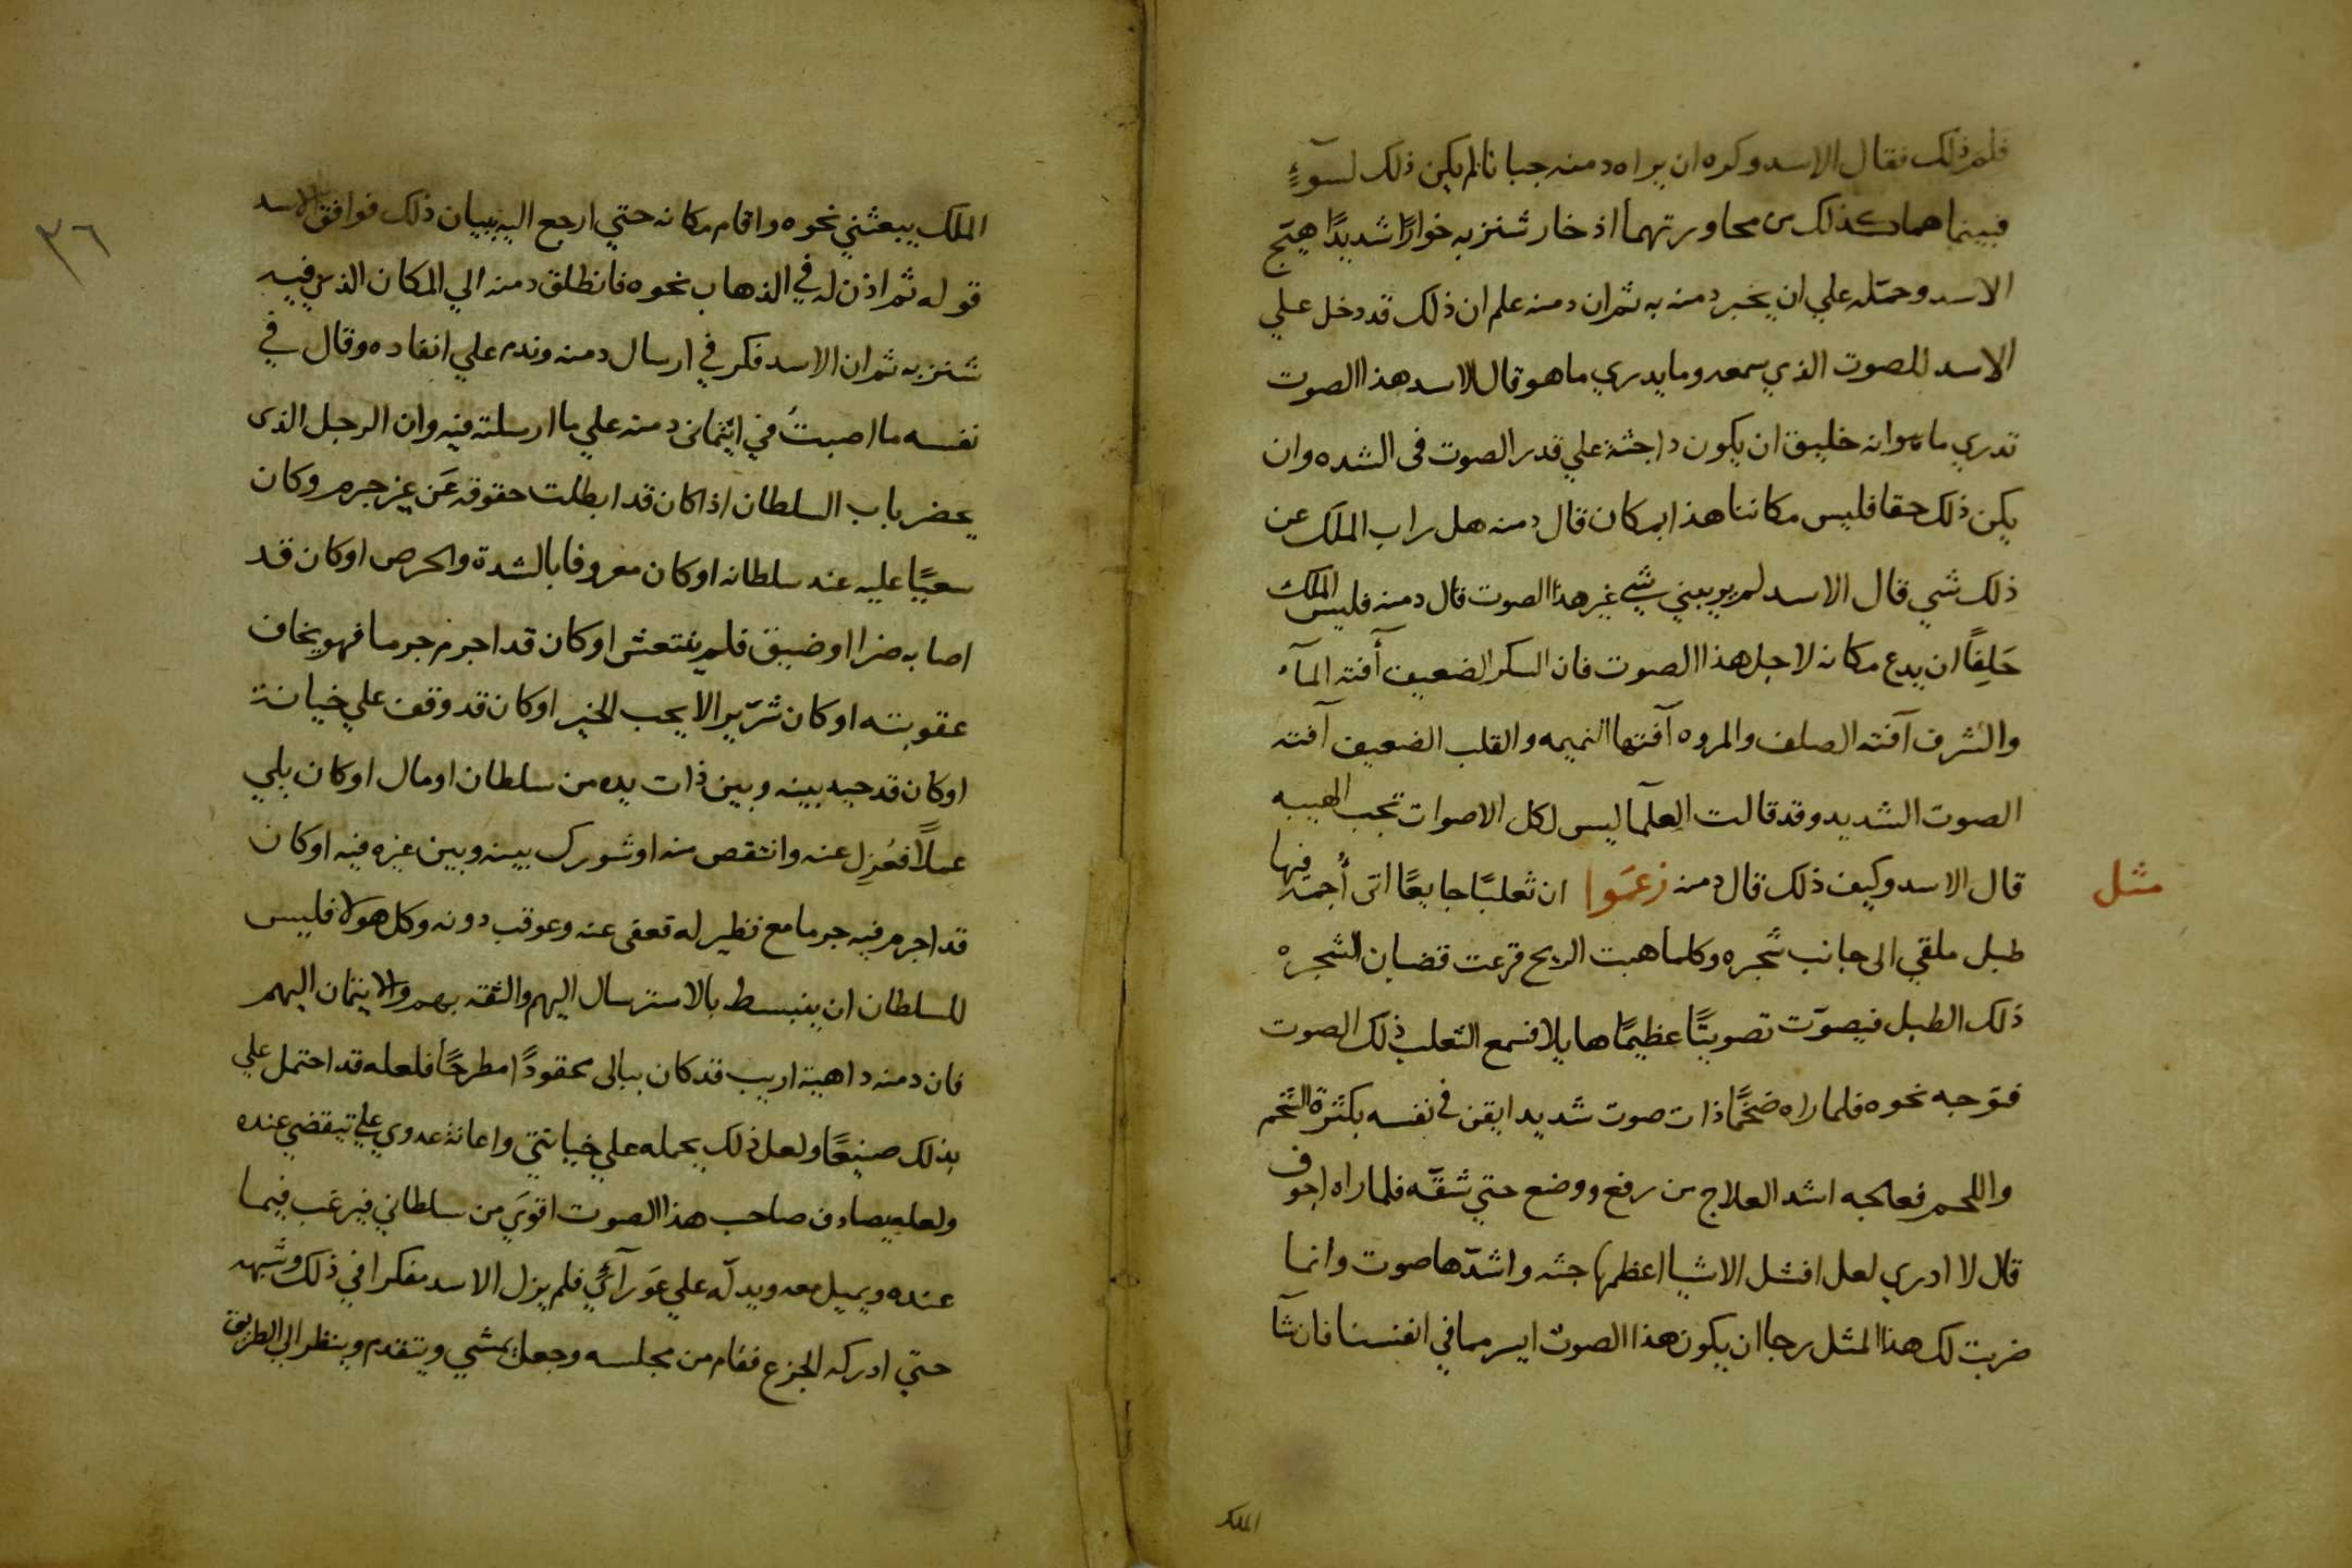 فلم ذلك فقال الاسد وكره ان يراه دمنه جبانا لم يكن ذلك لسوءٍ
فبينما هما كذلك من محاورتهما اذ خار شنزبه خوارًا شديدًا هيّج
الاسد وحمله علي ان يخبر دمنه به ثم ان دمنه علم ان ذلك قد دخل علي
الاسد للصوت الذي سمعه وما يدري ما هو قال الاسد هذا الصوت
تدري ما هو وانه خليق ان يكون ذا جثة علي قدر الصوت في الشده وان
يكن ذلك حقا فليس مكاننا هذا بمكان قال دمنه هل راب الملك عن
ذلك شي قال الاسد لم يريبني شي غير هذا الصوت قال دمنه فليس الملك
حَلِفًا ان يدع مكانه لاجل هذا الصوت فان السكر الضعيف أفته المآء
والشرف آفته الصلف والمروه آفتها النميمه والقلب الضعيف آفته
الصوت الشديد وقد قالت العلمآ ليس لكل الاصوات تجب الهيبه
مثل
قال الاسد وكيف ذلك قال دمنه زعَموا ان ثعلبًا جايعًا اتى أجمَة فيها
طبل ملقي الى جانب شجره وكلما هبت الريح قرعت قضبان الشجره
ذلك الطبل فيصوّت تصويتًا عظيمًا هايلا فسمع الثعلب ذلك الصوت
فتوجه نحوه فلما راه ضخمًا ذات صوت شديد ايقن في نفسه بكثرة الشحم
واللحم فعالجه اشد العلاج من رفع ووضع حتي شقّه فلما راه اجوف
قال لا ادري لعل افشل الاشيا اعظمها جثه واشدّها صوت وانما
ضربت لك هذا المثل رجا ان يكون هذا الصوت ايسر مما في انفسنا فان شآ
الملك
٣٦
الملك يبعثني نحوه واقام مكانه حتي ارجع اليه ببيان ذلك فوافق الاسد
قوله ثم اذن له في الذهاب نحوه فانطلق دمنه الي المكان الذي فيه
شنزبه ثم ان الاسد فكر في ارسال دمنه وندم علي انفاده وقال في
نفسه ما اصبتُ في ايتماني دمنه علي ما ارسلته فيه وان الرجل الذي
يحضر باب السلطان اذا كان قد ابطلت حقوقه عَن غير جرم وكان
سعيًا عليه عند سلطانه او كان معروفا بالشدة والحرص او كان قد
اصابه ضرا او ضيق فلم ينتعش او كان قد اجرم جرما فهو يخاف
عقوبته او كان شرّيرا لا يحب الخير او كان قد وقف علي خيانة
او كان قد حيد بينه وبين ذات يده من سلطان او مال او كان يلي
عملاً فعُزِل عنه وانتقص منه او شورك بينه وبين غيره فيه او كان
قد اجرم فيه جرما مع نظير له فعفى عنه وعوقب دونه وكل هولا فليس
للسلطان ان ينبسط بالاسترسال اليهم والثقه بهم والايتمان اليهم
فان دمنه داهية اريب قد كان ببالى محقودًا مطرحًا فلعله قد احتمل علي
بذلك صنيعًا ولعل ذلك يحمله علي خيانتي واعانة عدوي علي
ولعله يصادف صاحب هذا الصوت اقوَي من سلطاني فيرغب فيما
عنده ويميل معه ويدلّه علي عَورآئي فلم يزل الاسد مفكرا في ذلك وشبهه
حتي ادركه الجزع فقام من مجلسه وجعل يمشي ويتقدم وينظر الي الطريق